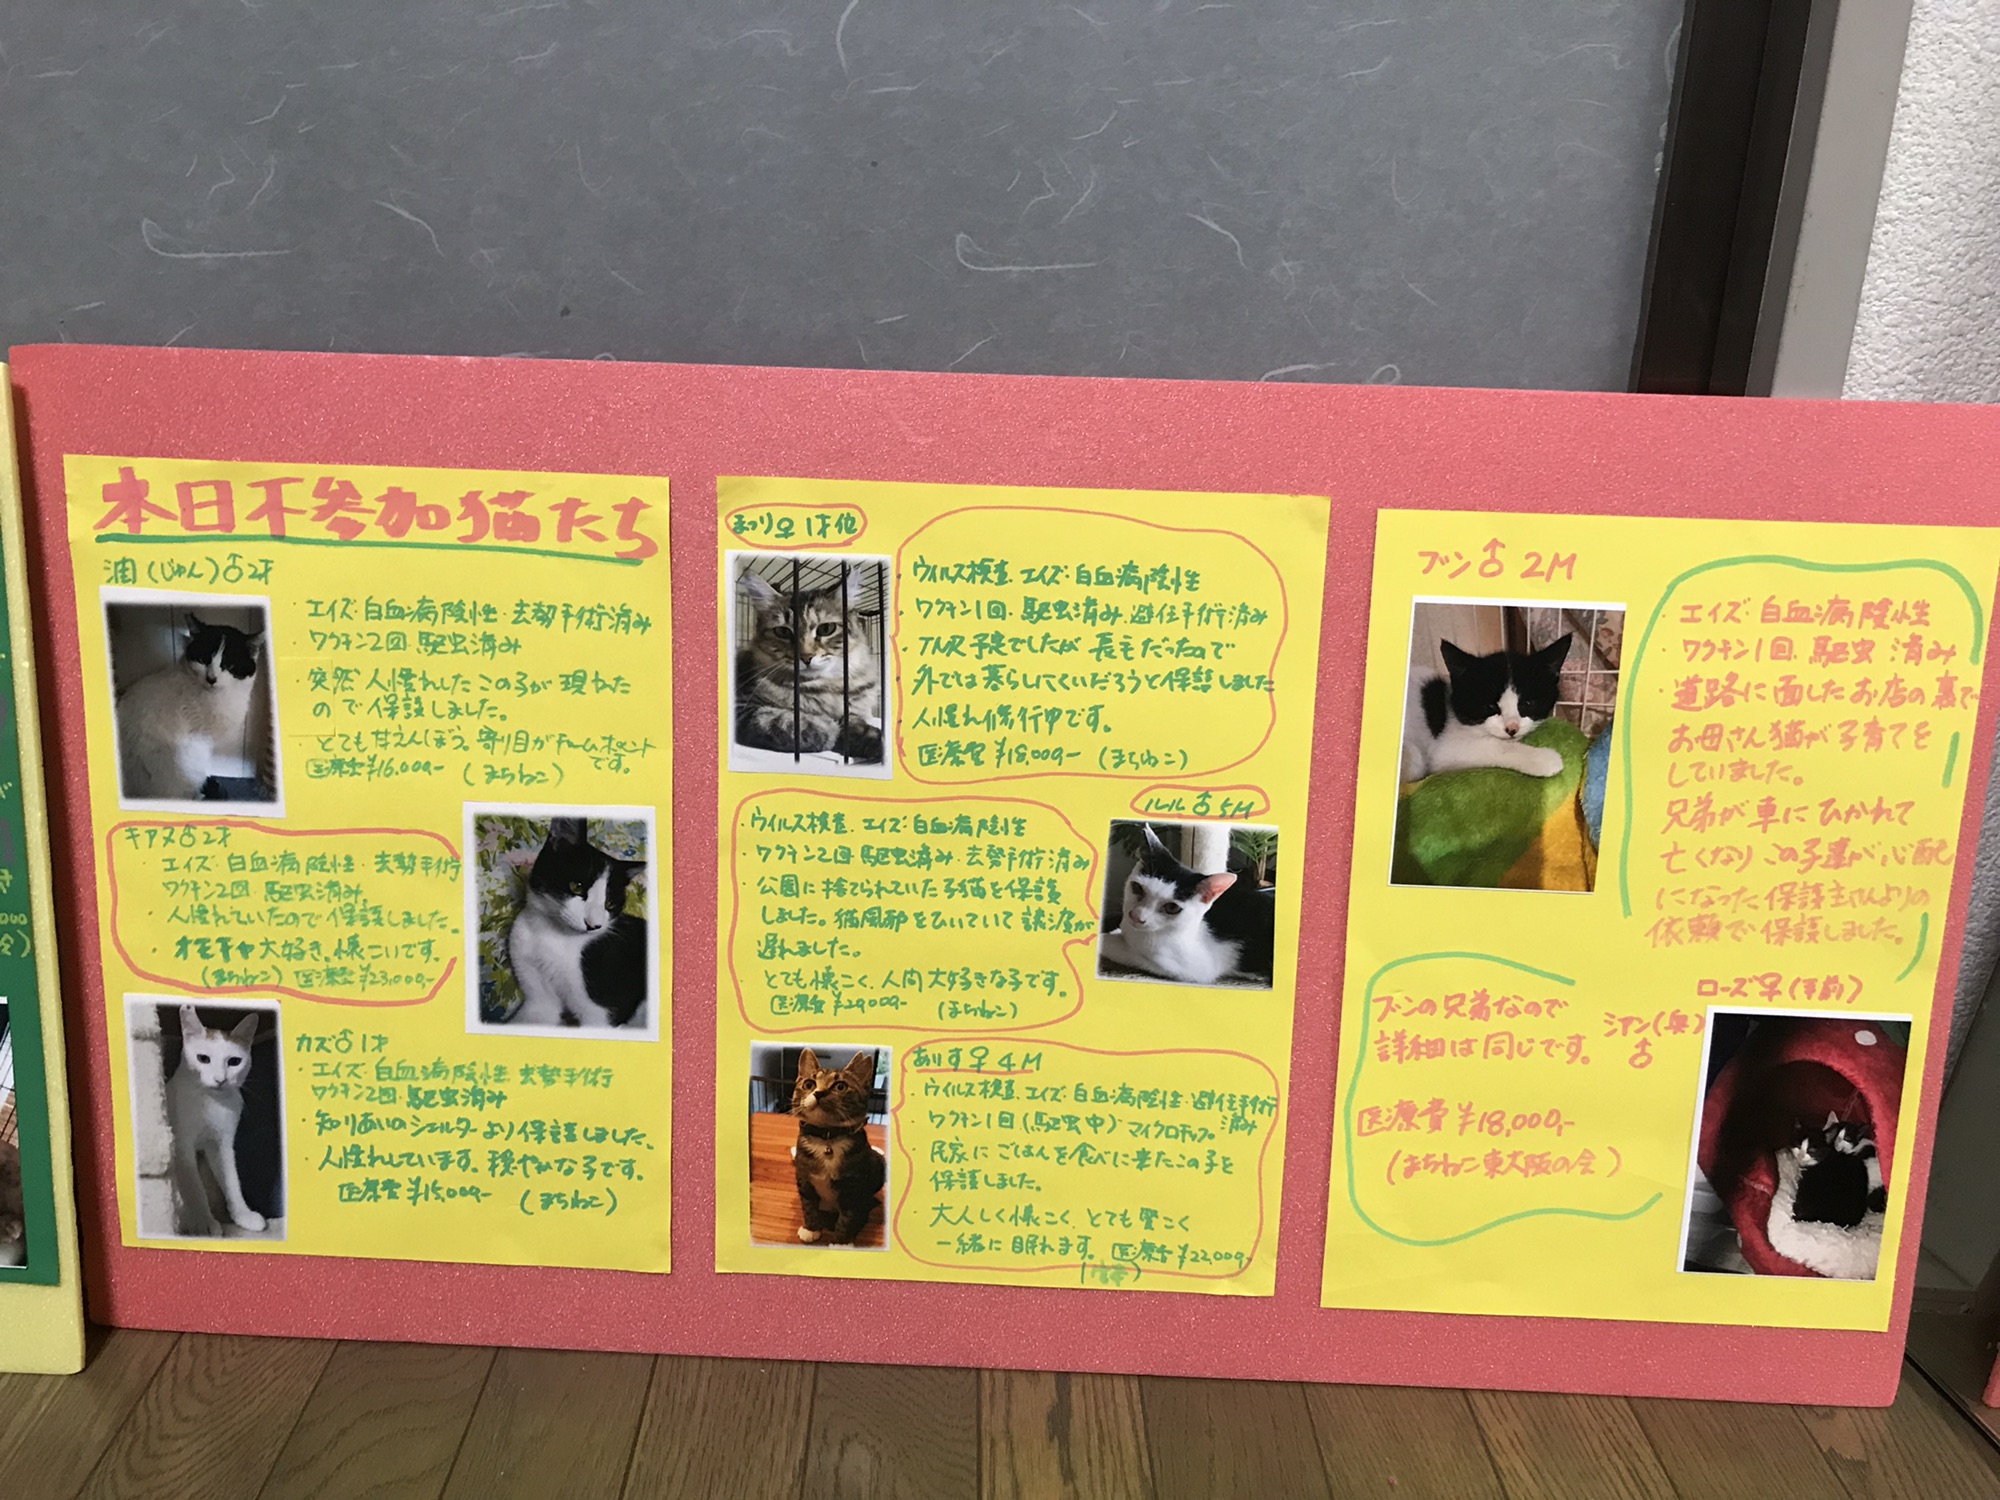 本日不参加猫たち
潤(じゅん)♂2才
・エイズ・白血病陰性・去勢手術済み
・ワクチン2回・駆虫済み
・突然人慣れしたこの子が現れた
ので保護しました。
・とても甘えんぼう。寄り目がチャームポイント
です。
医療費¥16,000- (まちねこ)
キアヌ♂2才
・エイズ・白血病陰性・去勢手術
ワクチン2回・駆虫済み
・人慣れていたので保護しました。
・オモチャ大好き。懐こいです。
(まちねこ) 医療費¥23,000,-
カズ♂1才
・エイズ・白血病陰性・去勢手術
ワクチン2回・駆虫済み
・知りあいのシェルターより保護しました。
・人慣れしています。穏やかな子です。
医療費¥15,000- (まちねこ)
まつり♀1才位
・ウイルス検査、エイズ・白血病陰性
・ワクチン1回・駆虫済み・避妊手術済み
・TNR予定でしたが長毛だったので
外では暮らしにくいだろうと保護しました
・人慣れ修行中です。
医療費¥18,000- (まちねこ)
ルル♂5M
・ウイルス検査、エイズ・白血病陰性
・ワクチン2回・駆虫済み・去勢手術済み
・公園に捨てられていた子猫を保護
しました。猫風邪をひいていて譲渡が
遅れました。
とても懐こく、人間大好きな子です。
医療費¥29,000- (まちねこ)
ありす♀4M
・ウイルス検査、エイズ・白血病陰性・避妊手術
・ワクチン1回(駆虫中)マイクロチップ。済み
・民家にごはんを食べに来たこの子を
保護しました。
・大人しく懐こく、とても賢こく
一緒に眠れます。医療費¥22,000,-
ブン♂2M
・エイズ・白血病陰性
・ワクチン1回、駆虫済み
・道路に面したお店の裏で
お母さん猫が子育てを
していました。
兄弟が車にひかれて
亡くなりこの子達が心配
になった保護主さんよりの
依頼で保護しました。
ローズ♀(手前)
シアン(奥)
♂
ブンの兄弟なので
詳細は同じです。
医療費¥18,000,-
(まちねこ東大阪の会)